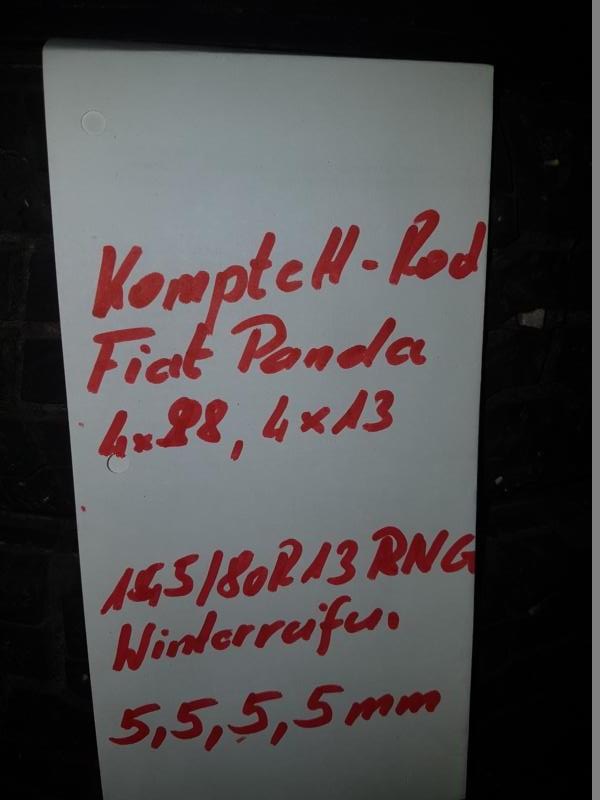 Komptett-Rad
Fiat Panda
4x98, 4x13
155/80R13 RNG
Winterreifen.
5,5,5,5mm